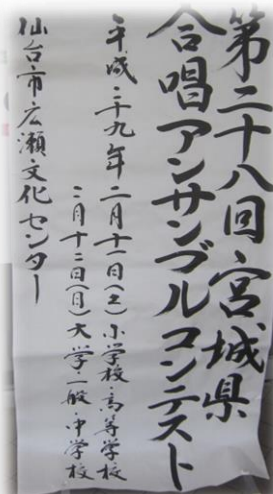 第二十八回宮城県
合唱アンサンブルコンテスト
平成二九年二月十一日(土)小学校・高等学校
二月十二日(日)大学・一般・中学校
仙台市広瀬文化センター